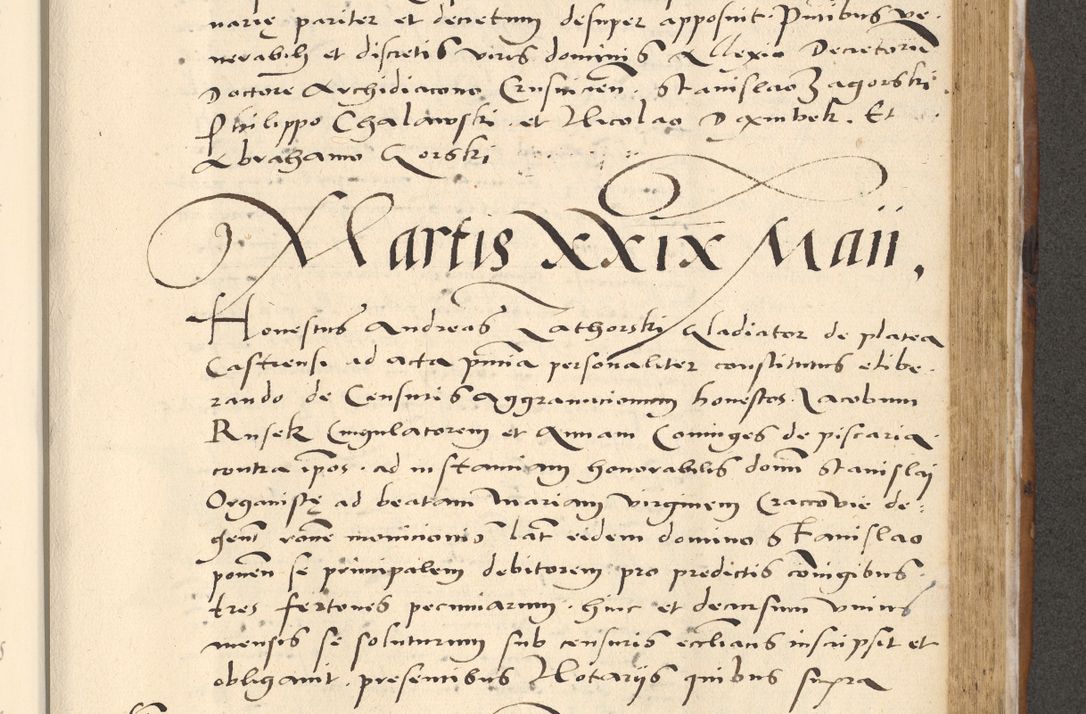 narię pariter et decretum desuper apposuit. Pntibus ve-
nerabili et discretis viris dominis Allexio Decretorum
Doctore Archidiacono Crusvicien. Stanislao Zagorski
Philippo Chalawski et Nicolao Dąmbek. Et
Abrahamo Gorski
Martis XXIX Maii,
Honestus Andreas Zathorski Gladiator de platea
Castrensi ad acta pntia personaliter constitutus elibe-
rando de Censuris aggravacionum honestos Iacobum
Rusek Cingulatorem et Annam Coniuges de piscaria
contra ipos ad instanciam honorabilis domi Stanislai
Organistę ad beatam Mariam virginem Craccovie de-
gent raone monicionis lat eidem domino Stanislao
ponen se principalem debitorem pro predictis coniugibus
tres fertones pecuniarum hinc et decursum unius
mensis se soluturum sub censuris ecclians inscripsit et
obligavit. presentibus Notariis quibus supra